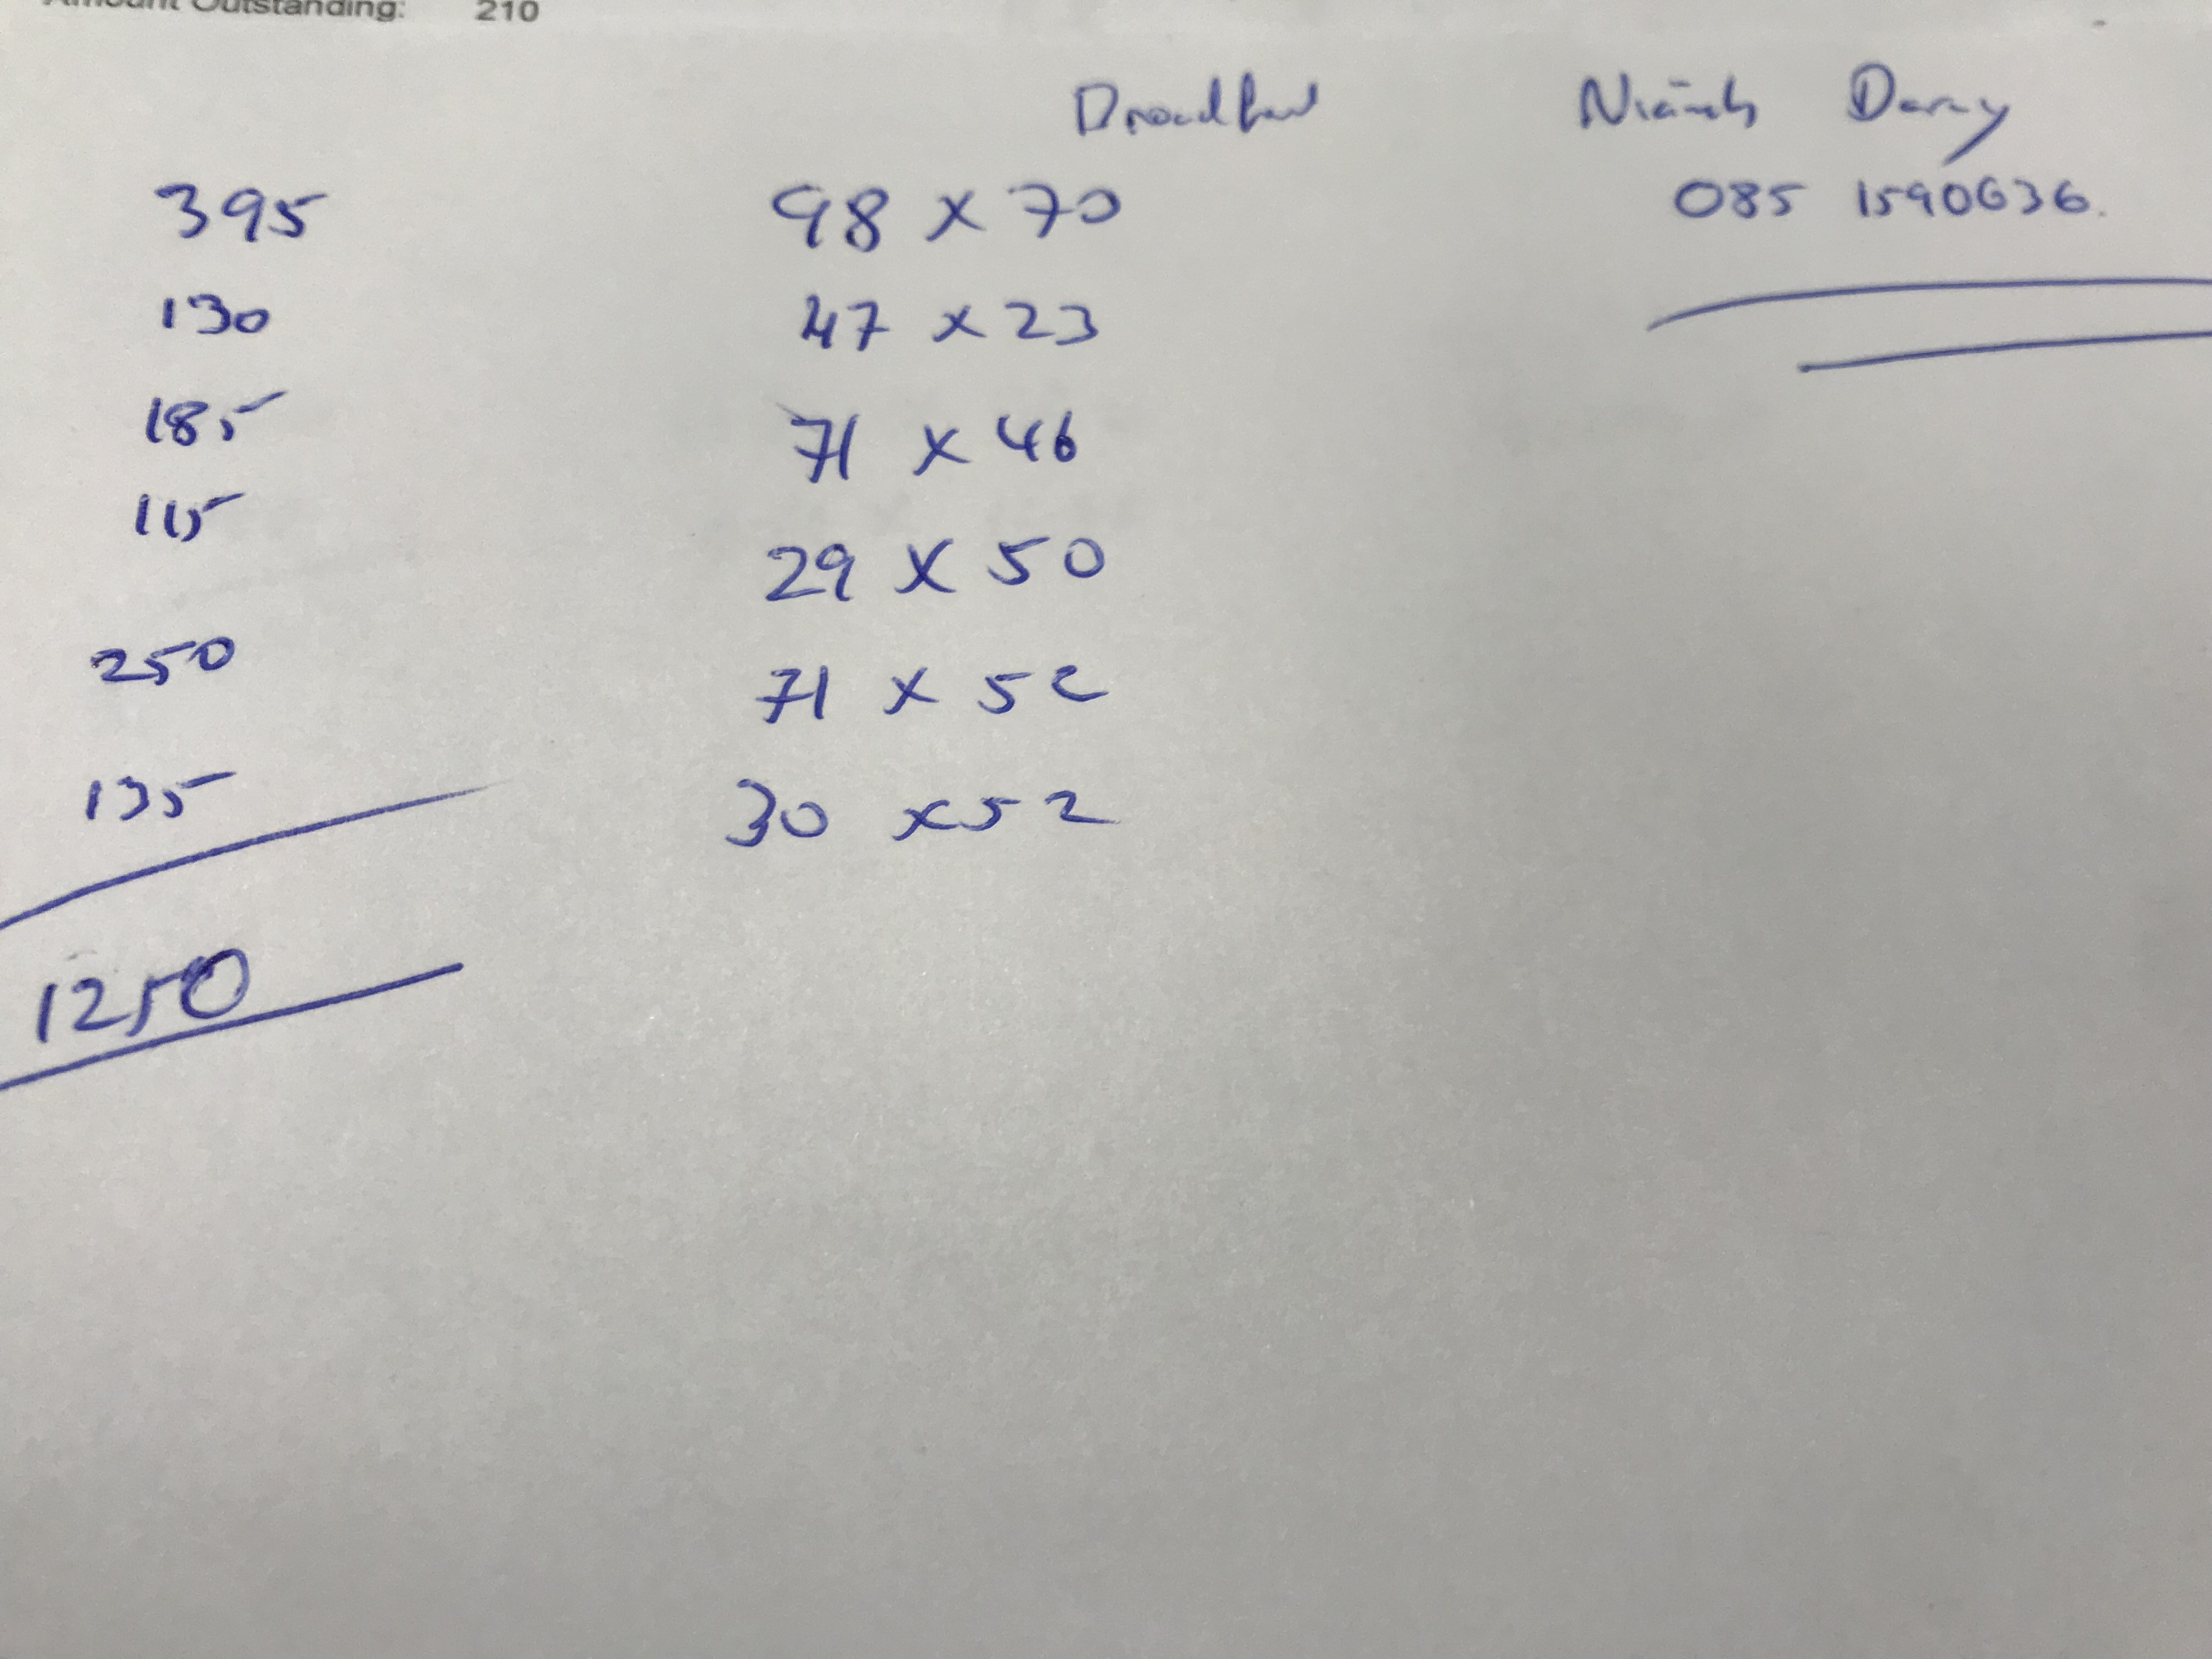 Amount Outstanding: 210
Niamh Darcy
395 98 x 70 085 1590636.
130 47 x 23
185 71 x 46
115 29 x 50
250 71 x 52
135 30 x 52
1250